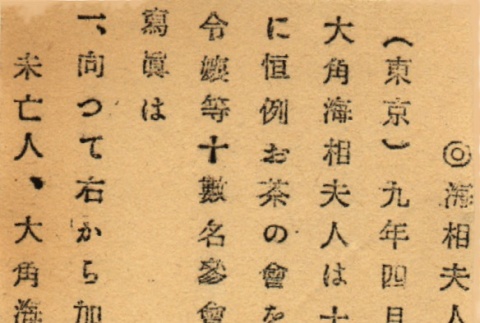 ◎海相夫人
（東京）九年四月
大角海相夫人は十
に恒例お茶の會を
令孃等十數名參會
寫眞は
一、向つて右から加
未亡人、大角海